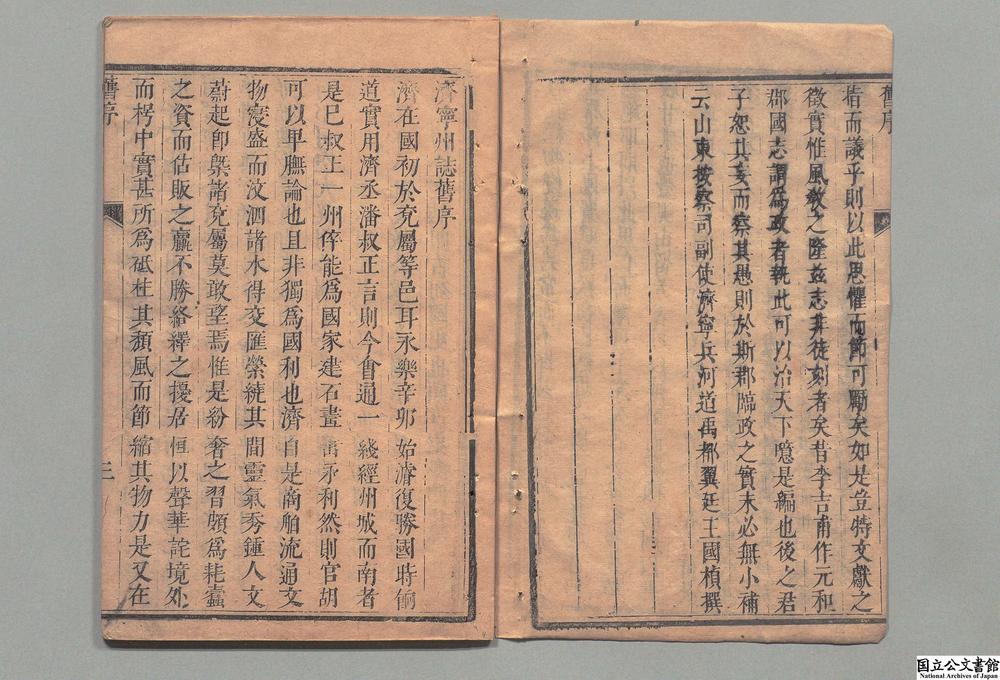 舊序
指而議乎則以此思懼而節可勵矣如是豈特文獻之
徵實惟風教之隆茲志非徒刻者矣昔李吉甫作元和
郡國志謂為政者執此可以治天下噫是編也後之君
子恕其妄而察其愚則於斯郡臨政之實未必無小補
云山東按察司副使濟寧兵河道禹都翼廷王國楨撰
濟寧州誌舊序
濟在國初於兗屬等邑耳永樂辛卯始濬復勝國時餉
道實用濟丞潘叔正言則今會通一綫經州城而南者
是已叔正一州倅能為國家建石畫
永利然則官胡
可以卑膴論也且非獨為國利也濟自是商舶流通文
物寖盛而汶泗諸水得交匯縈繞其間靈氣秀鍾人文
蔚起卽槩諸兗屬莫敢望焉惟是紛奢之習頗為耗蠹
之資而估販之贏不勝絡繹之擾居恒以聲華詫境外
而楞中實甚所為砥柱其頹風而節縮其物力是又在
舊序
三
国立公文書館
National Archives of Japan